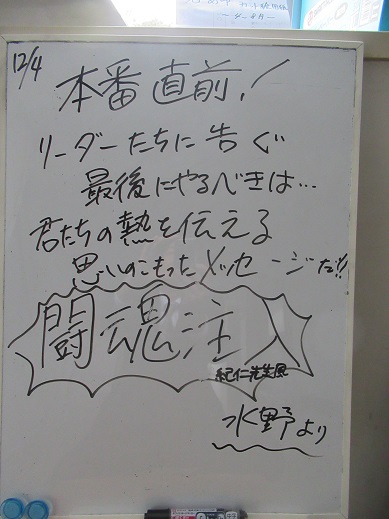 12/4
本番直前!
リーダーたちに告ぐ
最後にやるべきは…
君たちの熱を伝える
思いのこもったメッセージだ!!
闘魂注入
紀仁先生風
水野より